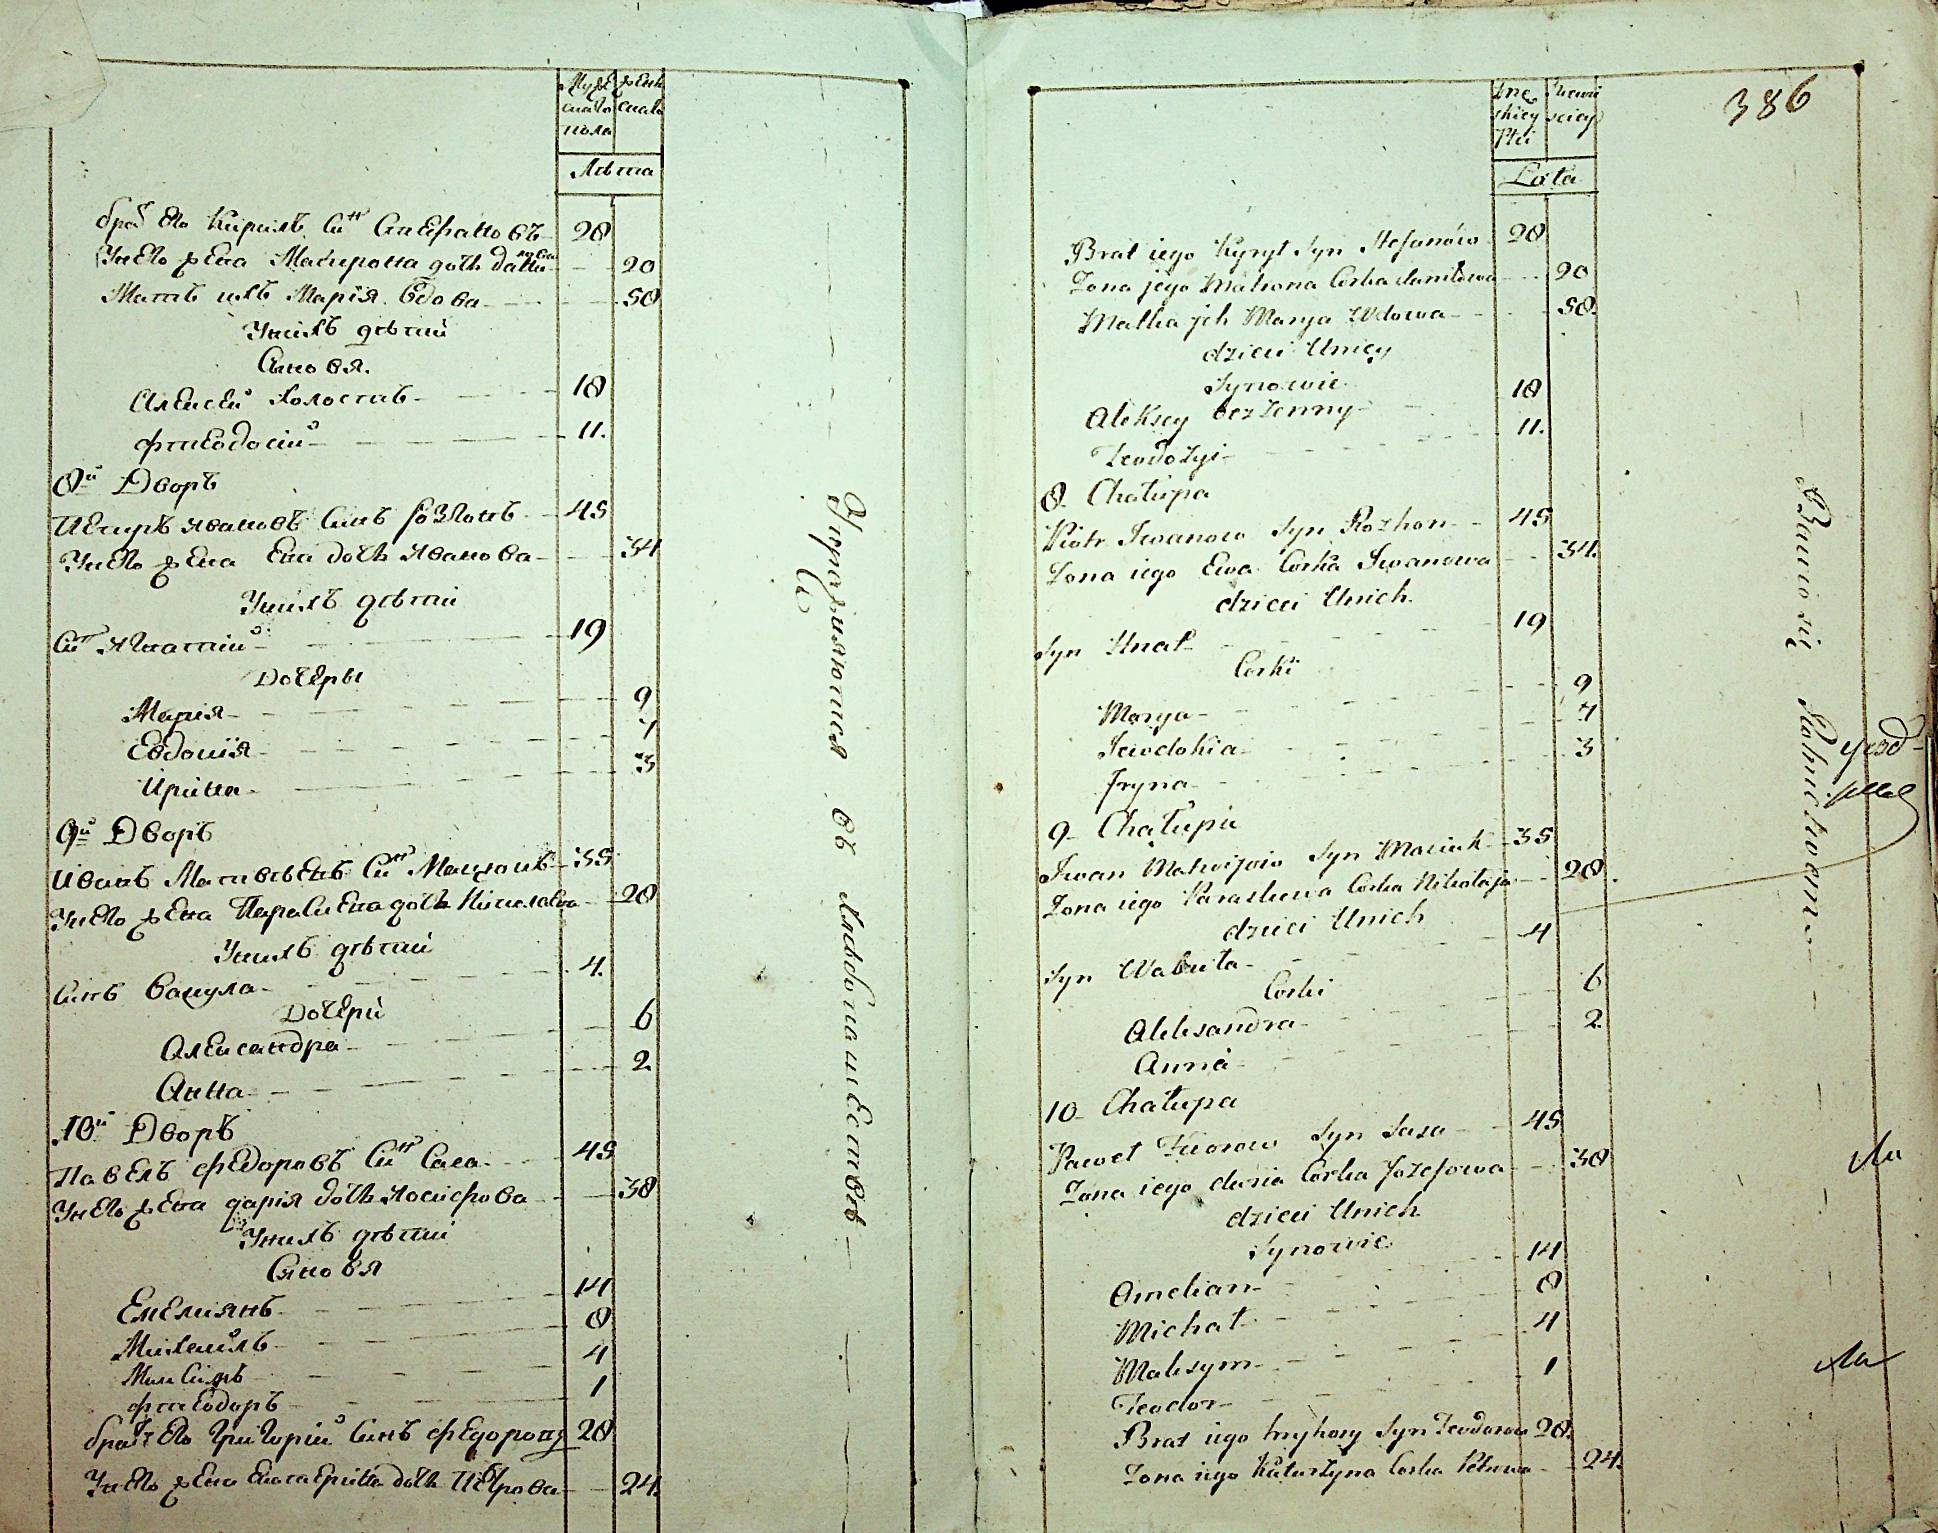 Мужескаго пола
женскаго
Лѣта
братъ его Кирилъ Синъ Стефановъ 28
У него жена Матирона дочь Данилова 20
Мать ихъ Марія вдова 58
У нихъ дѣтей
Синовя
Алексей холостъ 18
Фтеодосій 11.
8й Дворъ
Петиръ Ивановъ Синъ 45
У него жена Ева дочь Иванова 34
У нихъ дѣтей
Синъ Игнатій 19
Дочеры
Марія 9
Евдокія 7
Ирина 3
9й Дворъ
Иванъ Матвѣевъ Синъ 35
У него жена Параскева дочь Николаева 28
У нихъ дѣтей
Синъ Вакула 4.
Дочери
Александра 6
Анна 2
10й Дворъ
Павелъ Федоровъ Синъ Саса 45
У него жена дарія дочь Иосифова 38
У нихъ дѣтей
Синовя
Емелиянъ 14
Михаилъ 8
Максимъ 4
Фтеодоръ 1
братъ его Григорій Синъ Федоровъ 28
У него жена Екатерина дочь Петрова 24.
Упражняются въ хлѣбопашествѣ
386
Męskiey Płci
Lata
Brat iego Kyrył Syn Stefanów 28
Zona jego Matrona Corka daniłowa 20
Matka jch Marya Wdowa 58.
dzieci Unich
Synowie
Aleksey bezżenny 18
Teodozyi 11.
8 Chałupa
Piotr Iwanow Syn Rozhon 45
Zona iego Ewa Corka Iwanowa 34.
dzieci Unich
Syn Hnat 19
Corki
Marya 9
Iewdokia 7
Iryna 3
9 Chałupa
Iwan Matwijow Syn 35
Zona iego Paraskewa Corka Nikołaja 28
dzieci Unich
Syn Wakuła 4
Corki
Aleksandra 6
Anna 2
10 Chałupa
Paweł Syn Sasa 45
Zona iego daria Corka Jozefowa 38
dzieci Unich
Synowie
Omelian 14
Michał 8
Maksym 4
Teodor 1
Brat iego hryhory Syn Teodorow 28.
Zona iego Katarzyna Corka Petrowa 24.
Bawio się Rolnictwem